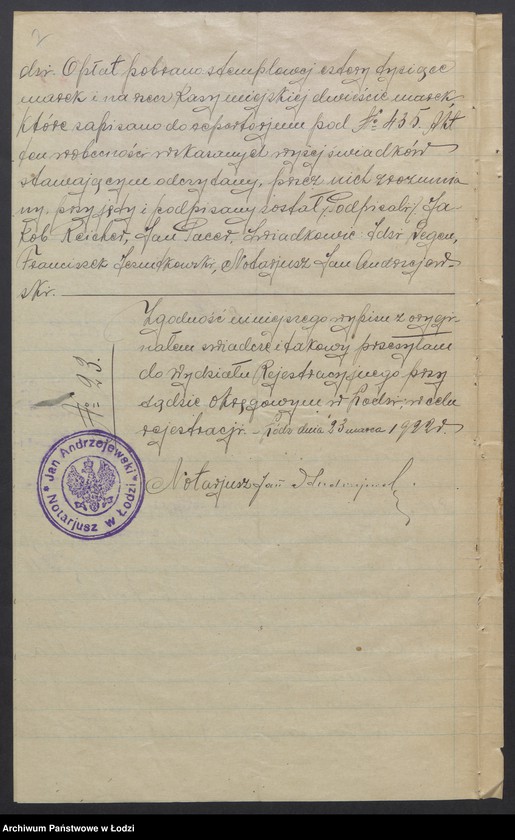 2
dzi. Opłat pobrano stemplowej cztery tysiące
marek i na rzecz Kasy miejskiej dwieście marek
które zapisano do repertorjum pod № 435. Akt
ten w obecności wskazanych wyżej świadków
stawającym odczytany, przez nich zrozumia
ny, przyjęty i podpisany został, (podpisali) Ja-
kób Reicher, Jan Pacer, świadkowie: Izdr.
Franciszek Notarjusz Jan Andrzejew
ski.
Zgodność niniejszego wypisu z orygi-
nałem świadczę i takowy przesyłam
do wydziału Rejestracyjnego przy
Sądzie Okręgowym w Łodzi, w celu
rejestracji. Łódź dnia 23 marca 1922 r.
№ 23.
Notarjusz Jan Andrzejewski
Jan Andrzejewski
Notarjusz w Łodzi
Archiwum Państwowe w Łodzi